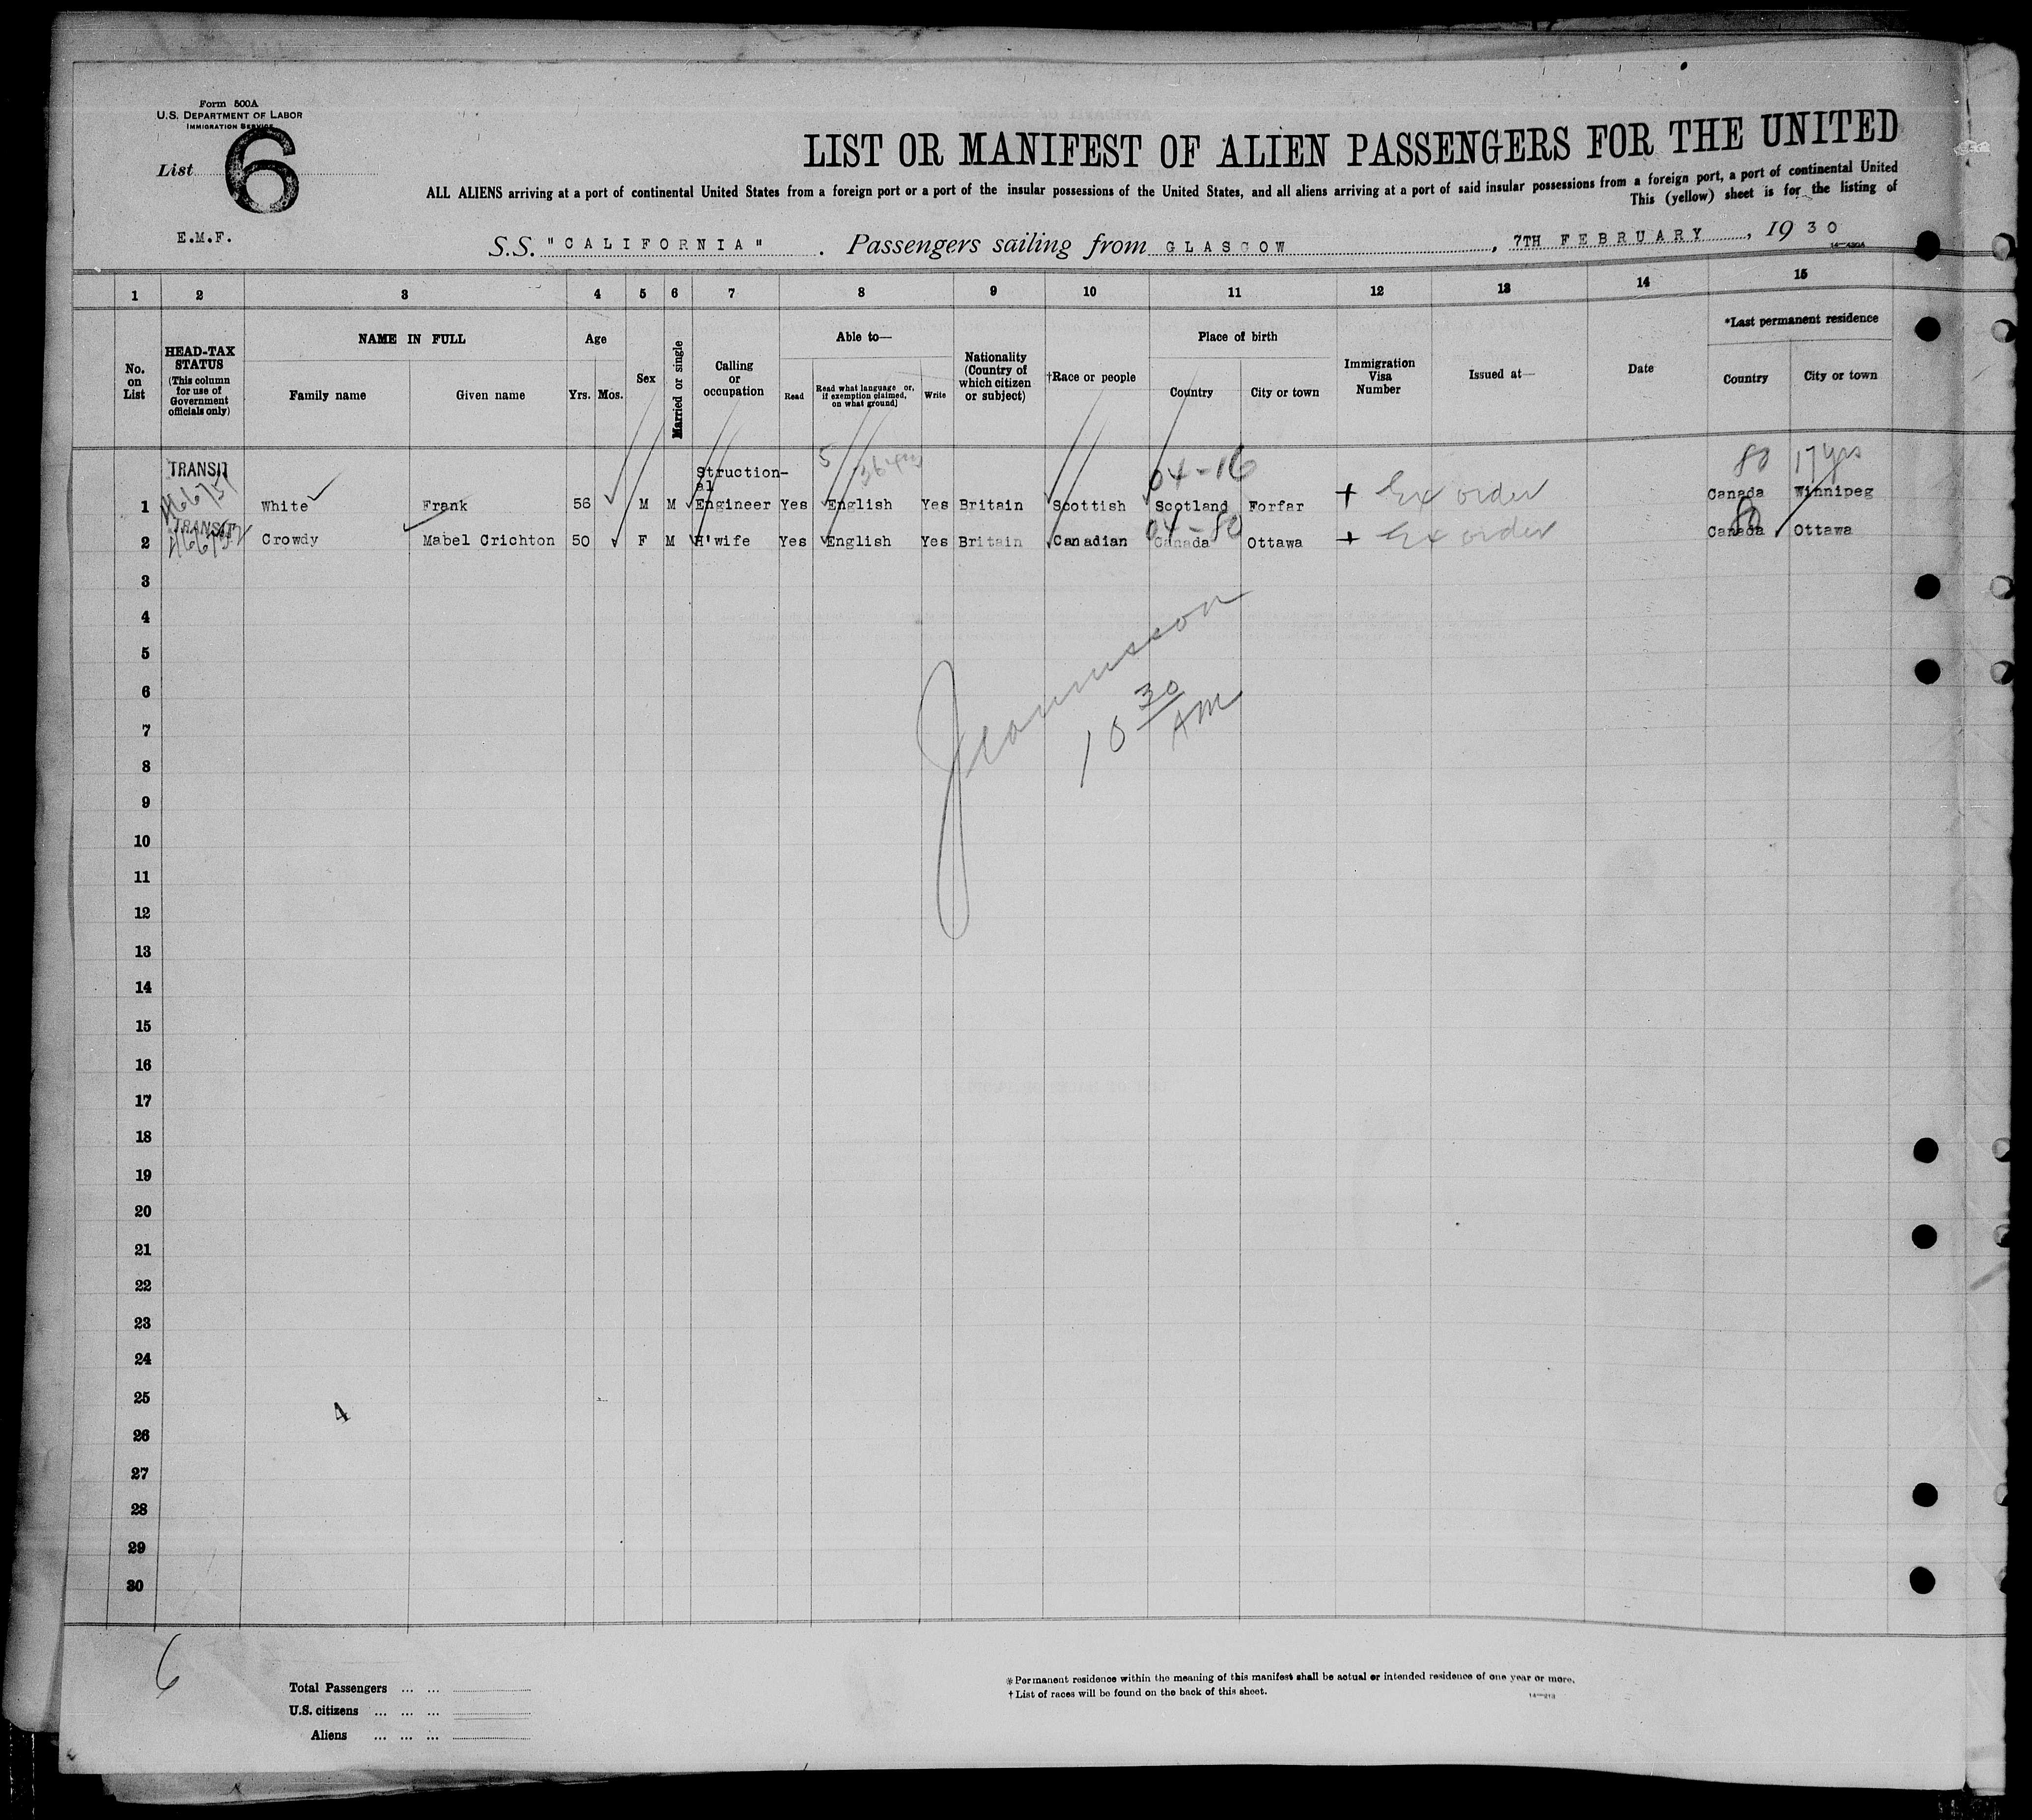 Form 500A
U.S. DEPARTMENT OF LABOR
IMMIGRATION SERVICE
List 6
LIST OR MANIFEST OF ALIEN PASSENGERS FOR THE UNITED
ALL ALIENS arriving at a port of continental United States from a foreign port or a port of the insular possessions of the United States, and all aliens arriving at a port of said insular possessions from a foreign port, a port of continental United
This (yellow) sheet is for the listing of
E.M.F.
S.S. "CALIFORNIA". Passengers sailing from GLASGOW, 7TH FEBRUARY, 1930
1 2 3 4 5 6 7 8 9 10 11 12 13 14 15
No. on List
HEAD-TAX STATUS (This column for use of Government officials only)
NAME IN FULL
Family name Given name
Age
Yrs. Mos.
Sex
Married or single
Calling or occupation
Able to—
Read Read what language or, if exemption claimed, on what ground] Write
Nationality (Country of which citizen or subject)
†Race or people
Place of birth
Country City or town
Immigration Visa Number
Issued at—
Date
*Last permanent residence
Country City or town
TRANSIT Struction-al 5 04-16 80 17 yrs
1 White Frank 56 M M Engineer Yes English Yes Britain Scottish Scotland Forfar + Ex order Canada Winnipeg
TRANSIT 04-80 80
2 Crowdy Mabel Crichton 50 F M H'wife Yes English Yes Britain Canadian Canada Ottawa + Ex order Canada Ottawa
3
4
5
6
7
8
9
10
11
12
13
14
15
16
17
18
19
20
21
22
23
24
25
26
27
28
29
30
10 30 AM
4
6
Total Passengers ... ...
U.S. citizens ... ... ...
Aliens ... ... ...
*Permanent residence within the meaning of this manifest shall be actual or intended residence of one year or more.
†List of races will be found on the back of this sheet.